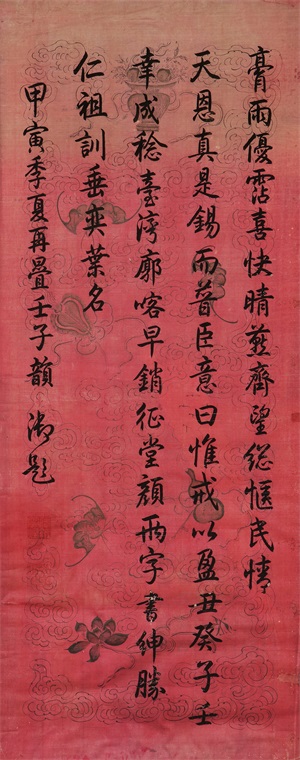 膏雨優霑喜快晴蓺齊望總愜民情
天恩真是錫而蕃臣意曰惟戒以盈丑癸子壬
幸成稔臺湾廓喀早銷征堂顔兩字書紳勝
仁祖訓垂奕葉名
甲寅季夏再疊壬子韻 御題